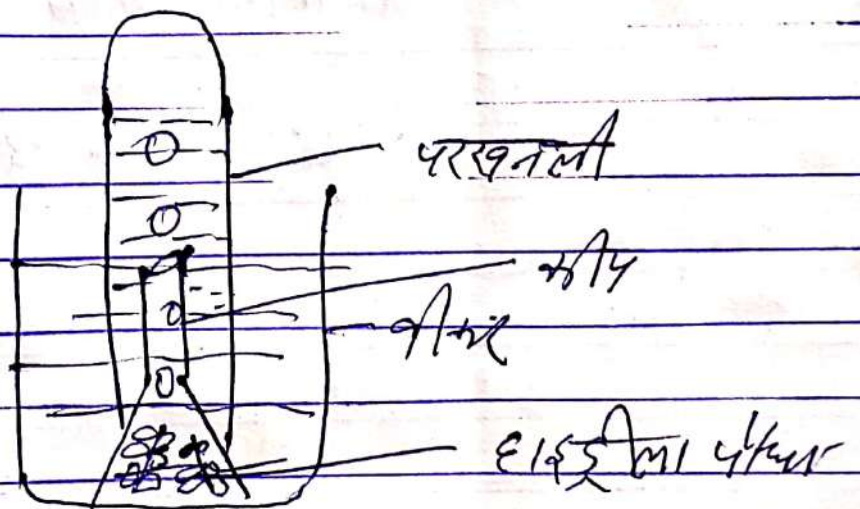 परखनली
कीप
बीकर
हाइड्रीला पौधा